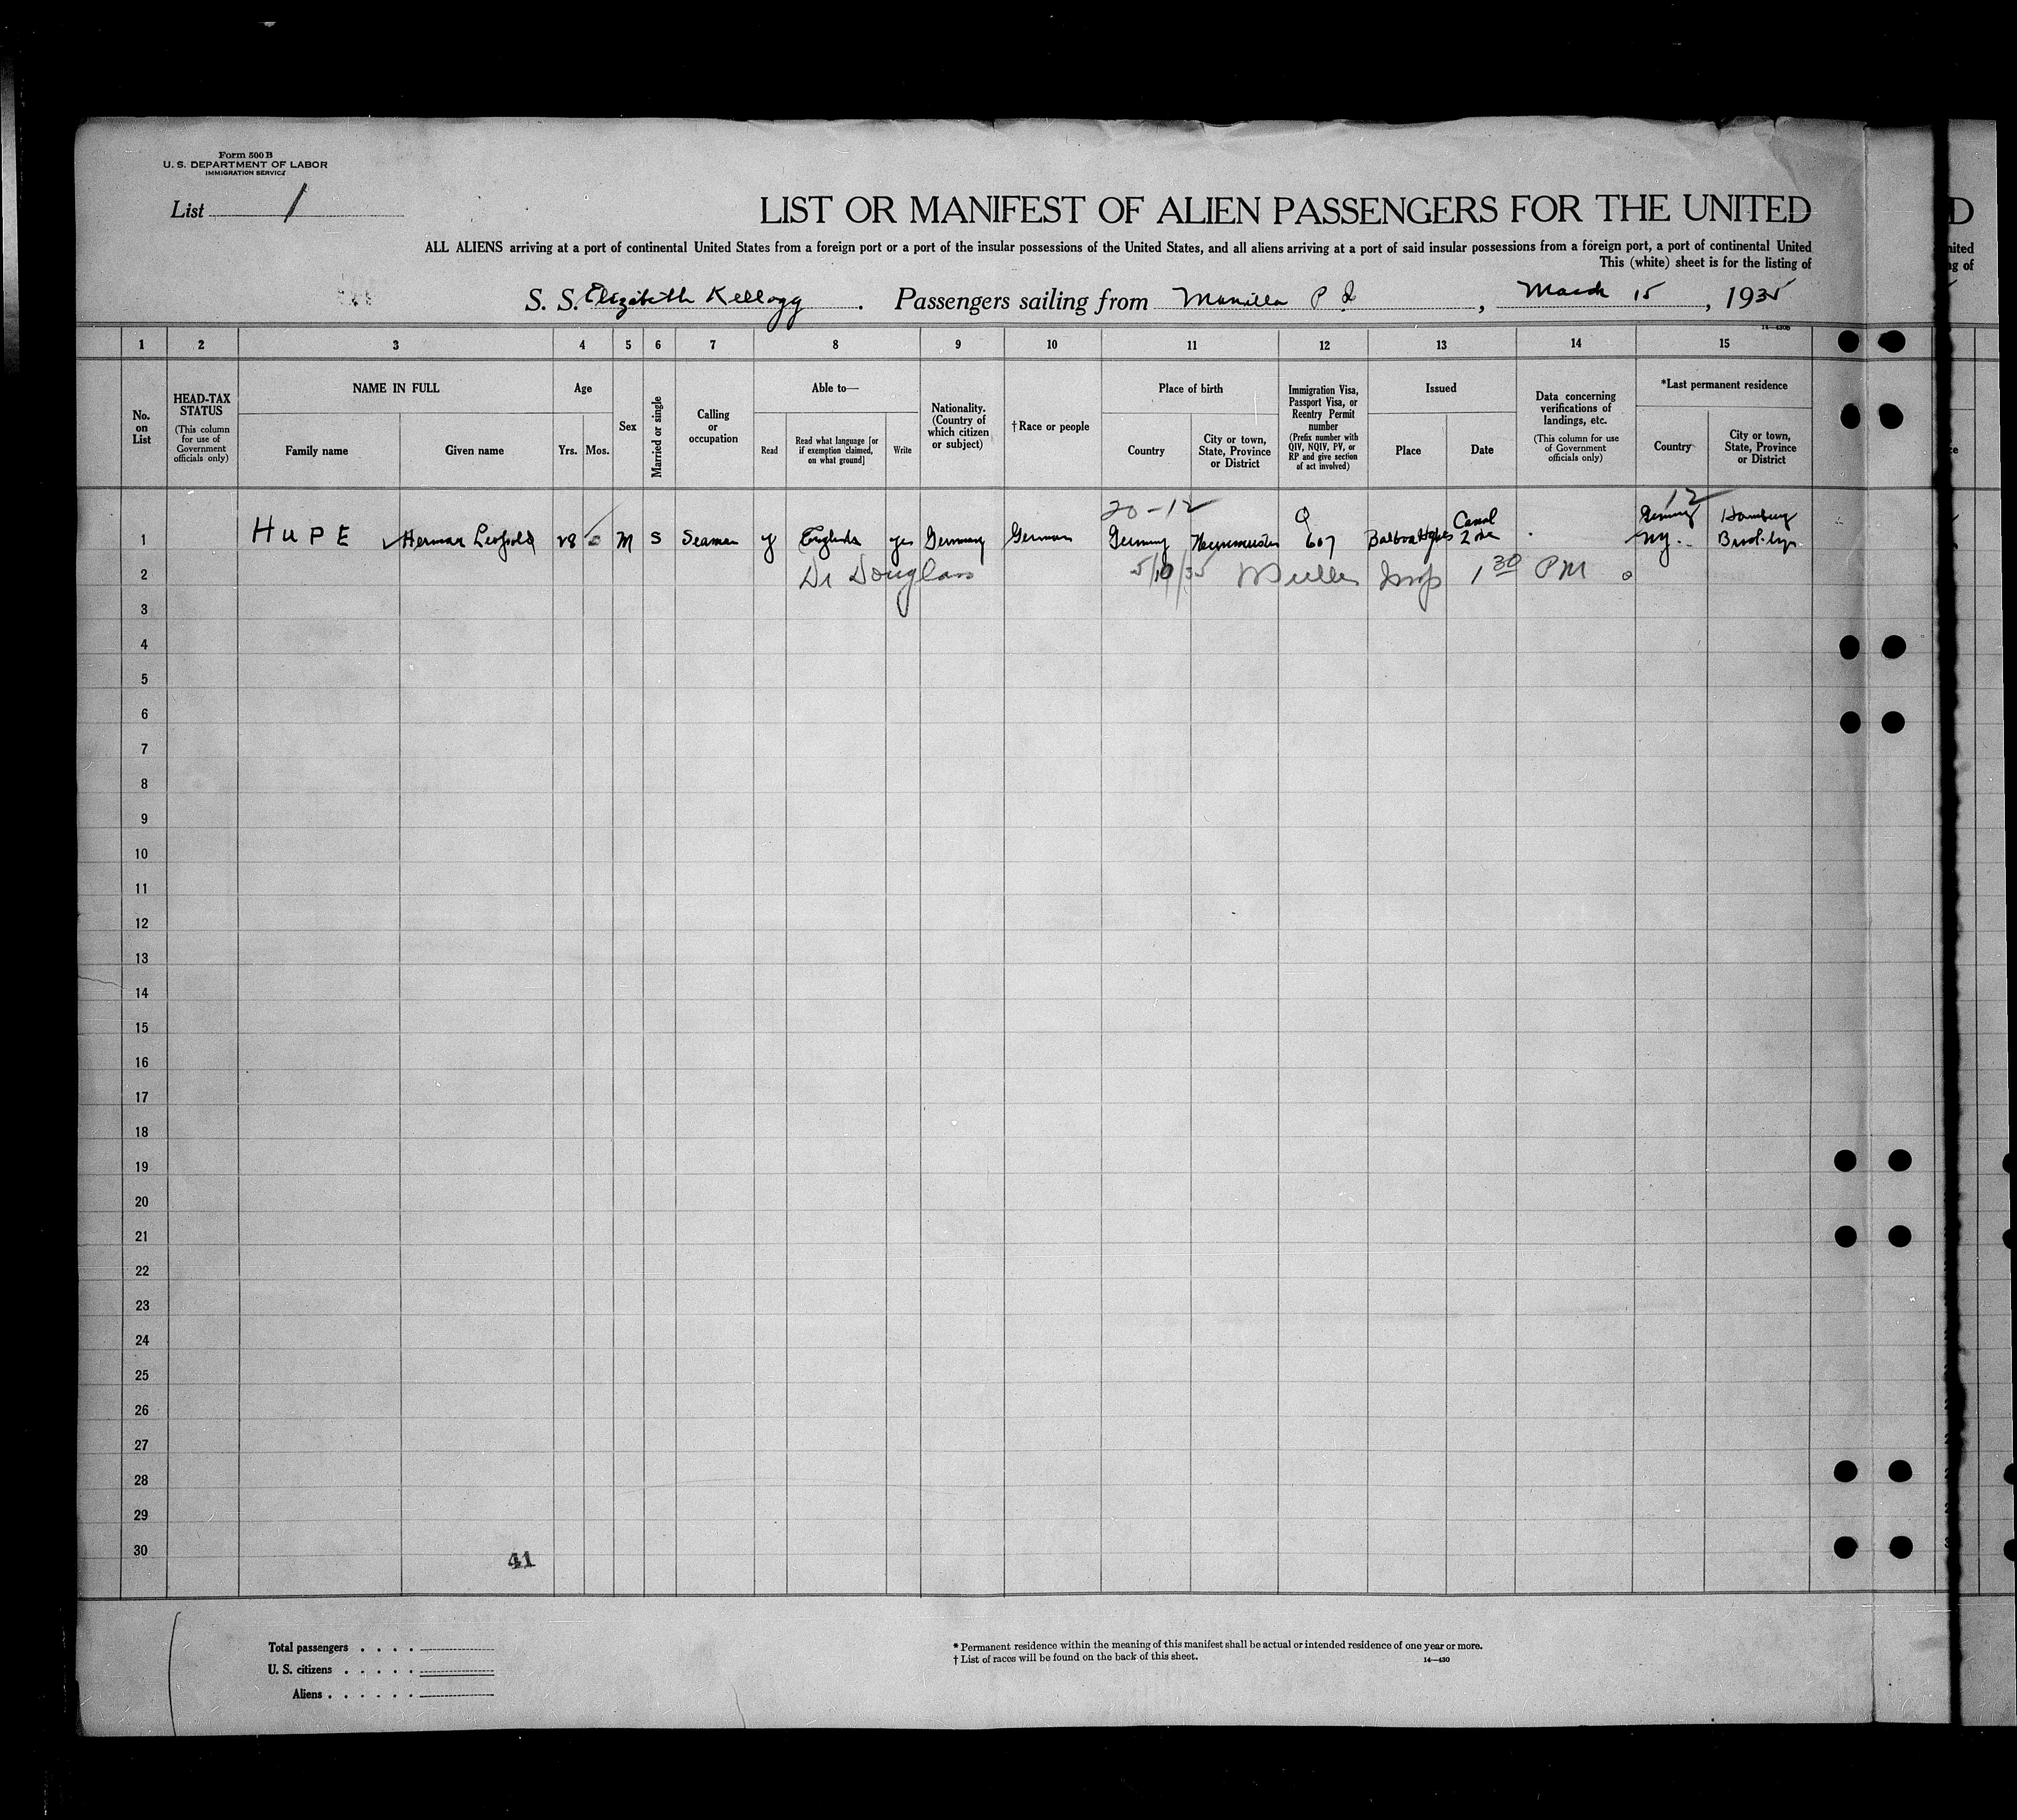 Form 500 B
U. S. DEPARTMENT OF LABOR
IMMIGRATION SERVICE
List 1
LIST OR MANIFEST OF ALIEN PASSENGERS FOR THE UNITED
ALL ALIENS arriving at a port of continental United States from a foreign port or a port of the insular possessions of the United States, and all aliens arriving at a port of said insular possessions from a foreign port, a port of continental United
This (white) sheet is for the listing of
S. S. Elizabeth Kellogg. Passengers sailing from Manilla P I, March 15, 1935
14-430B
1 2 3 4 5 6 7 8 9 10 11 12 13 14 15
No. on List
HEAD-TAX STATUS
(This column for use of Government officials only)
NAME IN FULL
Family name
Given name
Age
Yrs. Mos.
Sex
Married or single
Calling or occupation
Able to—
Read
Read what language [or if exemption claimed, on what ground]
Write
Nationality. (Country of which citizen or subject)
†Race or people
Place of birth
Country
City or town, State, Province or District
Immigration Visa, Passport Visa, or Reentry Permit number
(Prefix number with QIV, NQIV, PV, or RP and give section of act involved)
Issued
Place
Date
Data concerning verifications of landings, etc.
(This column for use of Government officials only)
*Last permanent residence
Country
City or town, State, Province or District
20-12 Q Canal 12 Germany Hamburg
1 HUPE Herman Leopold 28 M S Seaman y English yes Germany German Germany 607 Balboa Hghts Zone N.Y. Brooklyn
2 Dr Douglass 5/10/35 Insp 1 30 PM
3
4
5
6
7
8
9
10
11
12
13
14
15
16
17
18
19
20
21
22
23
24
25
26
27
28
29
30
41
Total passengers
U. S. citizens
Aliens
* Permanent residence within the meaning of this manifest shall be actual or intended residence of one year or more.
† List of races will be found on the back of this sheet.
14—430